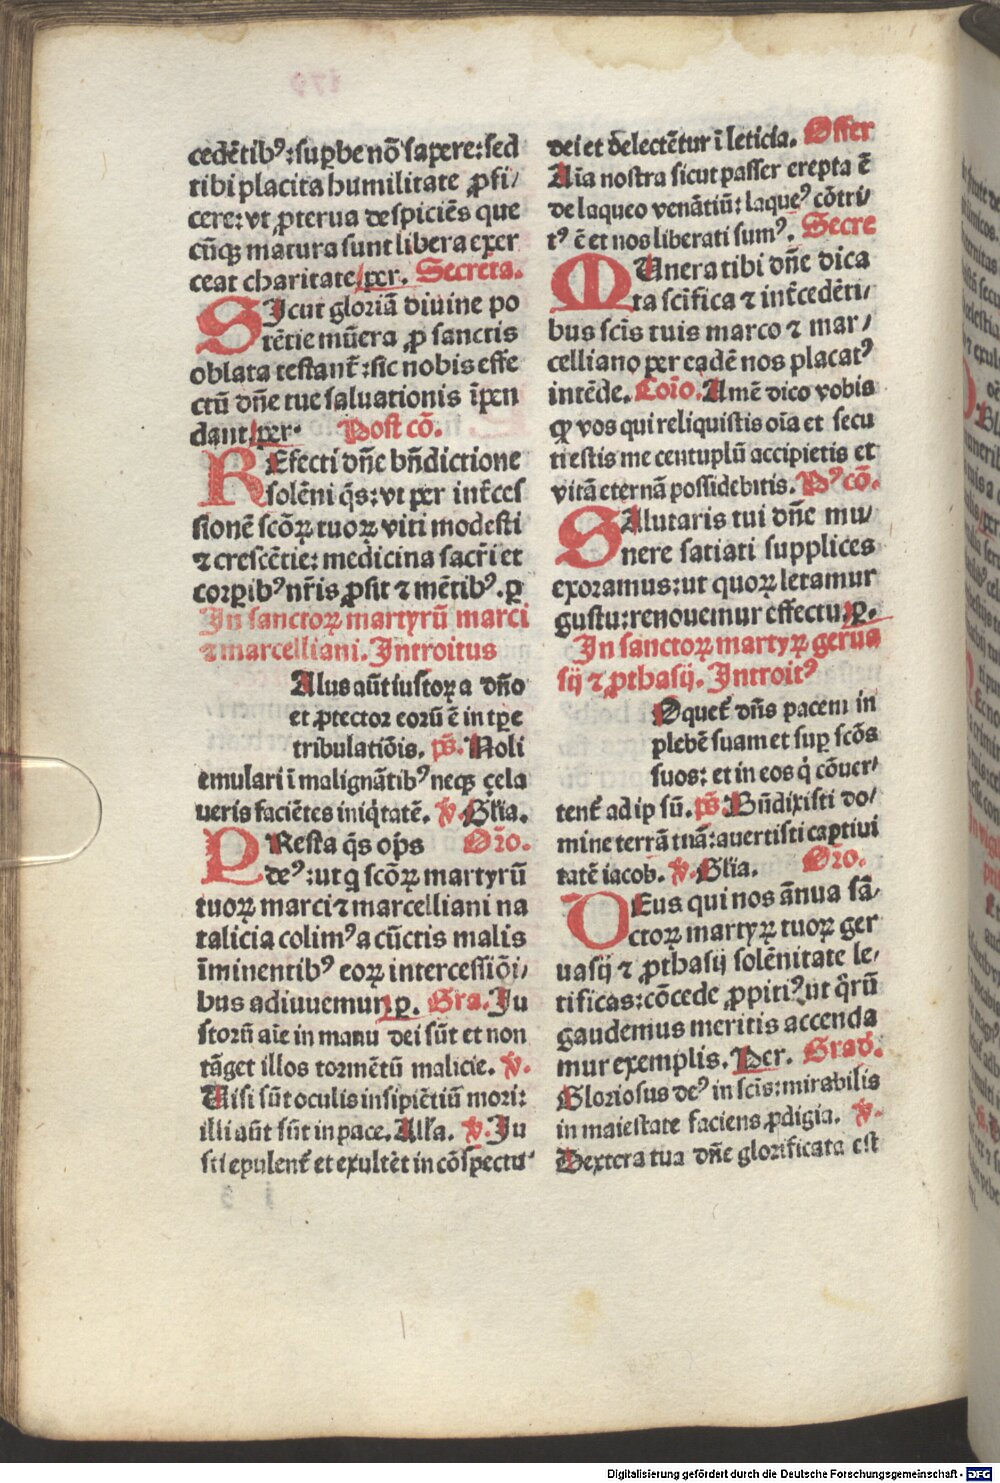 cedētibꝰ: suꝑbe nō sapere: sed
tibi placita humilitate ꝓfi/
cere: vt ꝓterua despiciēs que
cūqꝫ matura sunt libera exer
ceat charitate. ꝑ. Secreta.
SIcut gloriā diuine po
tētie mūera ꝓ sanctis
oblata testant᷑: sic nobis effe
ctū dn̄e tue saluationis īpen
dant. per. Post cō.
REfecti dn̄e bn̄dictione
solēni q̄s: vt per int̄ces
sionē scōꝝ tuoꝝ viti modesti
⁊ crescētie: medicina sacr̄i et
corꝑibꝰ nr̄is ꝓsit ⁊ mētibꝰ. ꝑ
In sanctoꝝ martyrū marci
⁊ marcelliani. Introitus
Alus aūt iustoꝝ a dn̄o
et ꝓtector eorū ē in tꝑe
tribulatiōis. ps̄. Noli
emulari ī malignātibꝰ neqꝫ çela
ueris faciētes iniq̇tatē. ℣. Gl̄ia.
PResta q̄s op̄s Oro.
deꝰ: ut q̇ scōꝝ martyrū
tuoꝝ marci ⁊ marcelliani na
talicia colimꝰ a cūctis malis
īminentibꝰ eoꝝ intercessiōi/
bus adiuuemur. ꝑ. Gra. Iu
storū aīe in manu dei sūt et non
tāget illos tormētū malicie. ℣.
Uisi sūt oculis insipiētiū mori:
illi aūt sūt in pace. Alľa. ℣. Iu
sti epulent᷑ et exultēt in cōspectu
j 3
dei et delectētur ī leticia. Offer
Aīa nostra sicut passer erepta ē
de laqueo venātiū: laqueꝰ cōtri/
tꝰ ē et nos liberati sumꝰ. Secre
MUnera tibi dn̄e dica
ta scīfica ⁊ int̄cedēti/
bus scīs tuis marco ⁊ mar/
celliano per eadē nos placatꝰ
intēde. Coīo. Amē dico vobis
ꝙ vos qui reliquistis oīa et secu
ti estis me centuplū accipietis et
vitā eternā possidebitis. Pꝰ cō.
SAlutaris tui dn̄e mu/
nere satiati supplices
exoramus: ut quoꝝ letamur
gustu: renouemur effectu. ꝑ.
In sanctoꝝ martyꝝ gerua
sij ⁊ ꝓthasij. Introitꝰ
Oquet᷑ dn̄s pacem in
plebē suam et suꝑ scōs
suos: et in eos q̇ cōuer/
tent᷑ ad ip sū. ps̄. Bn̄dixisti do/
mine terrā tuā: auertisti captiui
tatē iacob. ℣. Gl̄ia. Oro.
DEus qui nos ānua sā/
ctoꝝ martyꝝ tuoꝝ ger
uasij ⁊ ꝓthasij solēnitate le/
tificas: cōcede ꝓpitiꝰ ut q̄rū
gaudemus meritis accenda
mur exemplis. Per. Grad̄.
Gloriosus deꝰ in scīs: mirabilis
in maiestate faciens ꝓdigia. ℣.
Dextera tua dn̄e glorificata est
Digitalisierung gefördert durch die Deutsche Forschungsgemeinschaft - DFG